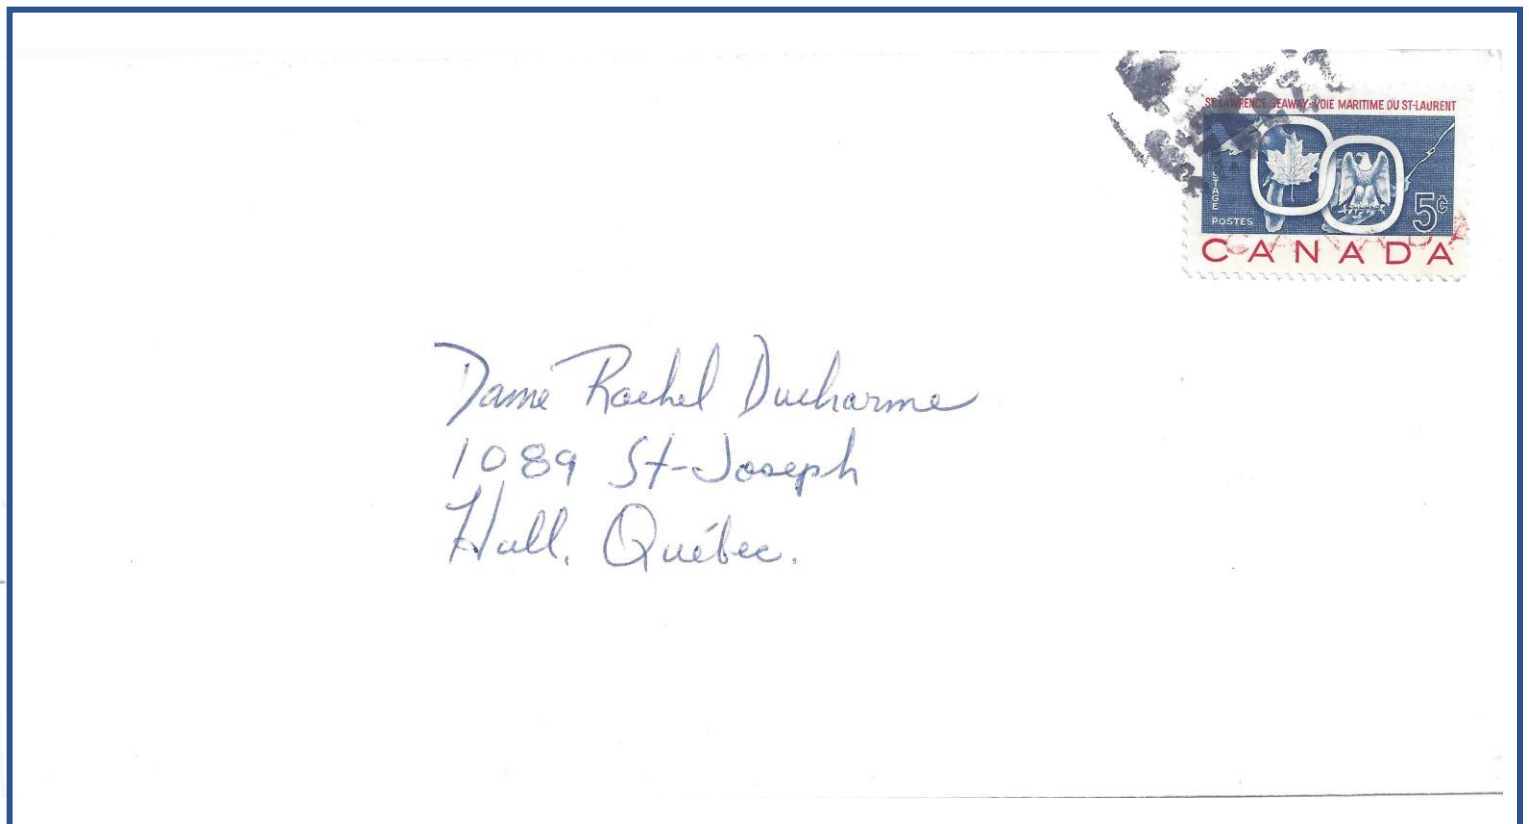 ST LAWRENCE SEAWAY·VOIE MARITIME DU ST-LAURENT
POSTAGE
POSTES
5¢
CANADA
Dame Rachel Ducharme
1089 St-Joseph
Hull, Québec.